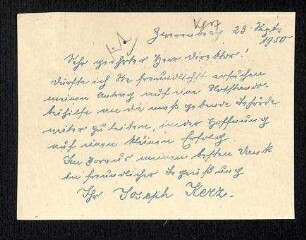 Kerz
23. Septb. 1950
Sehr geehrter Herr Direktor!
Dürfte ich Sie freundlichst ersuchen
meinen Antrag auf eine Notstands-
beihilfe an die maßgebende Behörde
weiter zu leiten, in der Hoffnung
auf einen kleinen Erfolg
Im Voraus meinen besten Dank
In freundlicher Begrüßung
Ihr Joseph Kerz.